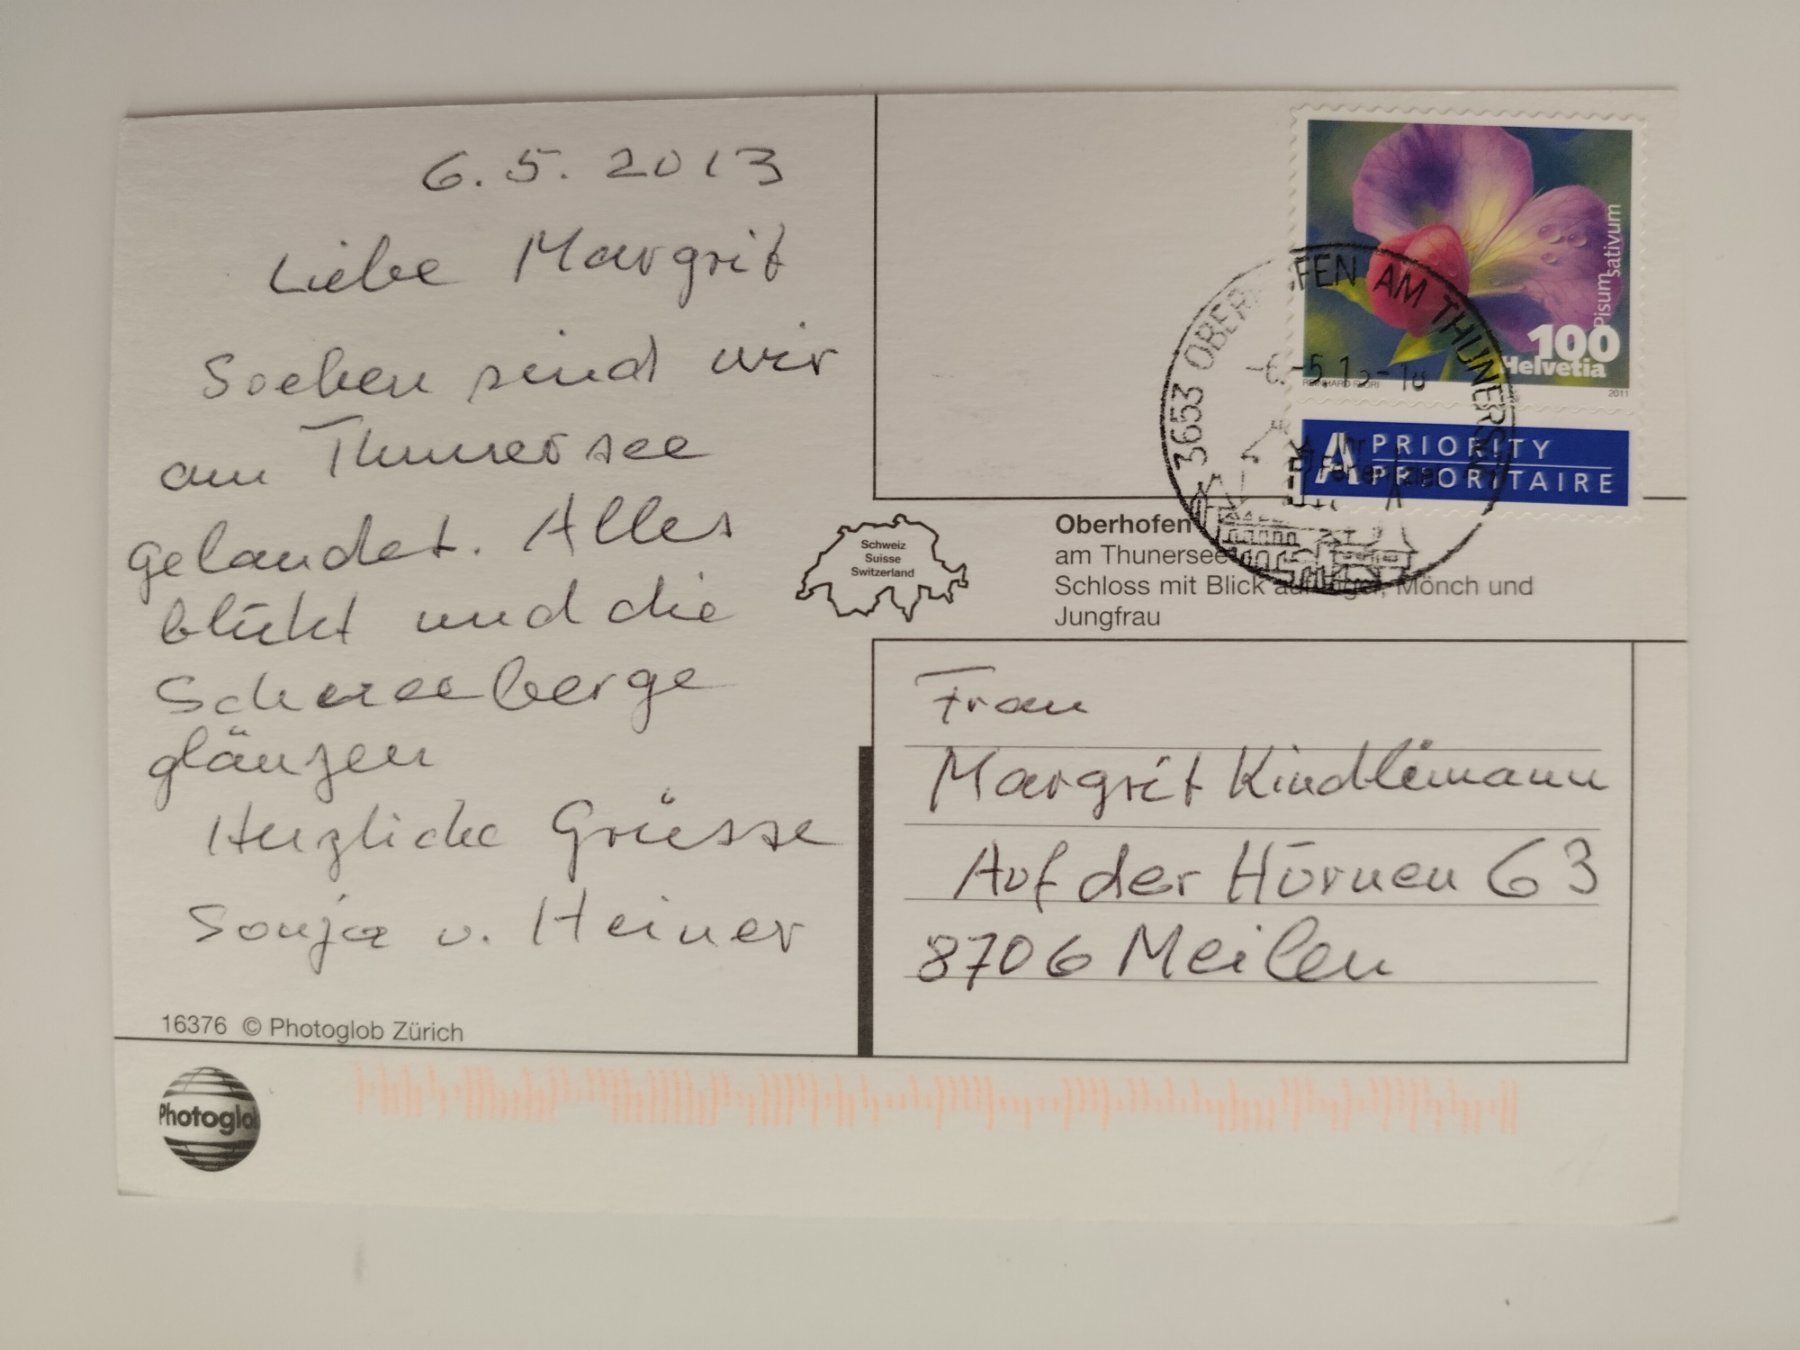 6.5.2013
Liebe Margrit
Soeben sind wir
am Thunersee
gelandet. Alles
blüht und die
Schneeberge
glänzen
Herzliche Grüsse
Sonja u. Heiner
16376 © Photoglob Zürich
Photoglob
Schweiz
Suisse
Switzerland
Pisum sativum
100
Helvetia
REINHARD FLURI
2011
A PRIORITY
PRIORITAIRE
3653 OBERHOFEN AM THUNERSEE
-6.-5.13-18
Ihr
Oberhofen
am Thunersee
Schloss mit Blick auf Eiger, Mönch und
Jungfrau
Frau
Margrit Kindlimann
Auf der Hürnen 63
8706 Meilen